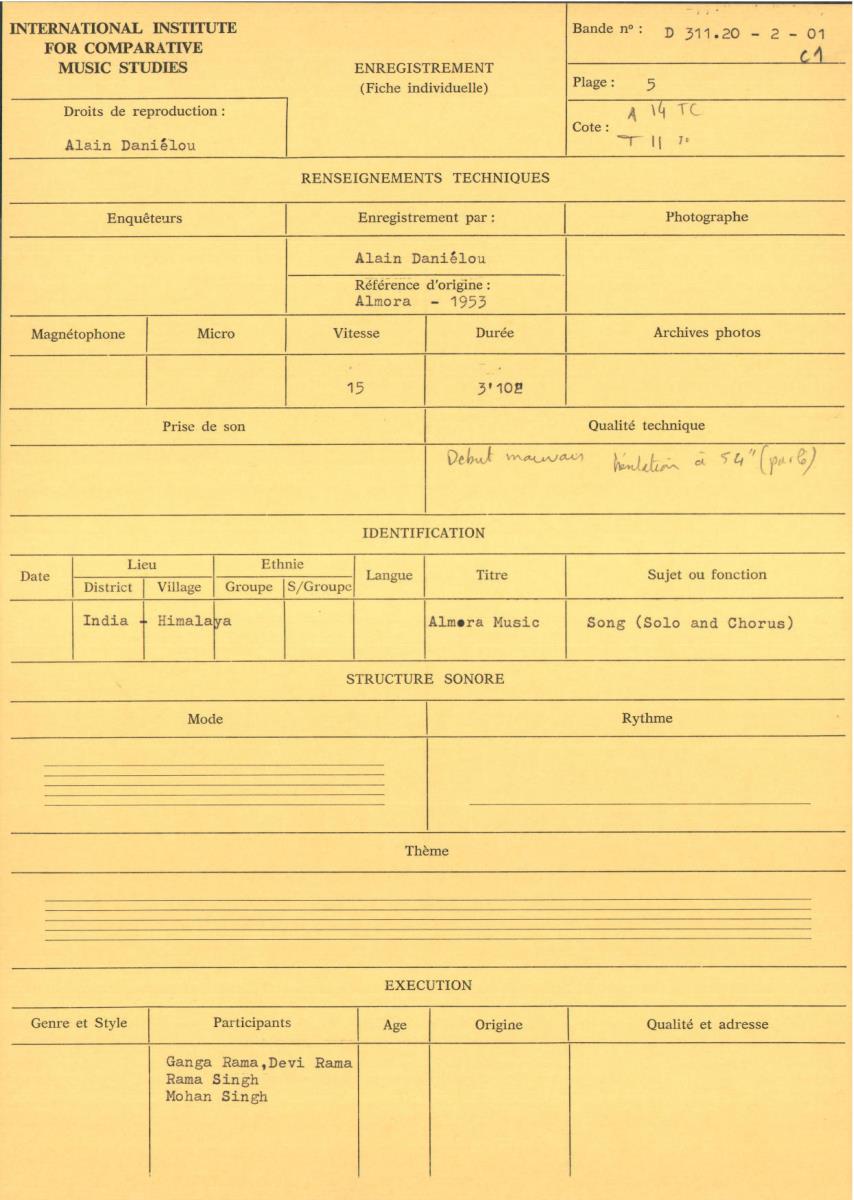 INTERNATIONAL INSTITUTE
FOR COMPARATIVE
MUSIC STUDIES
Droits de reproduction :
Alain Daniélou
ENREGISTREMENT
(Fiche individuelle)
Bande nº : D 311.20 - 2 - 01
C1
Plage : 5
Cote : A 14 TC
T 11
RENSEIGNEMENTS TECHNIQUES
Enquêteurs
Enregistrement par :
Photographe
Alain Daniélou
Référence d'origine :
Almora - 1953
Magnétophone
Micro
Vitesse
Durée
Archives photos
15
3'10"
Prise de son
Qualité technique
Debut mauvais hésitation à 54" (parlé)
IDENTIFICATION
Date
Lieu
District
Village
Ethnie
Groupe
S/Groupe
Langue
Titre
Sujet ou fonction
India - Himalaya
Almora Music
Song (Solo and Chorus)
STRUCTURE SONORE
Mode
Rythme
Thème
EXECUTION
Genre et Style
Participants
Age
Origine
Qualité et adresse
Ganga Rama,Devi Rama
Rama Singh
Mohan Singh